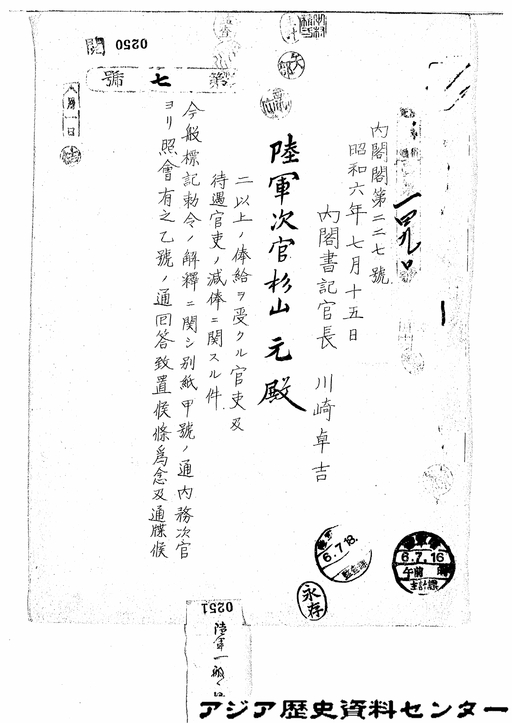 內閣閣第二二七號
昭和六年七月十五日
內閣書記官長 川崎卓吉
陸軍次官杉山元殿
二以上ノ俸給ヲ受クル官吏及
待遇官吏ノ減俸ニ関スル件
今般標記勅令ノ解釋ニ関シ別紙甲號ノ通內務次官
ヨリ照會有之乙號ノ通回答致置候條爲念及通牒候
第七號
0250
八月一日
6.7.18
6.7.16
午前
主計課
永存
0251
アジア歴史資料センター